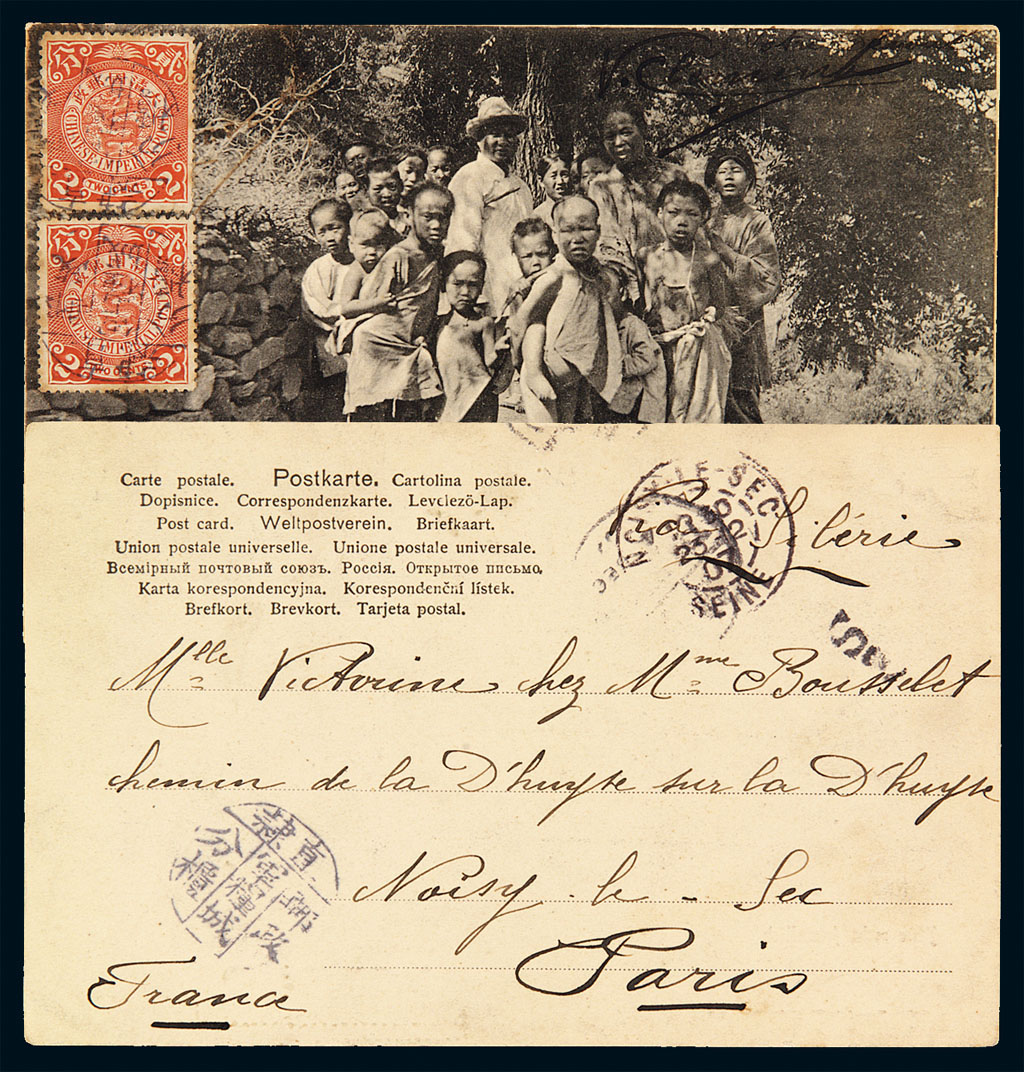 分 貳
大清國郵政
CHINESE IMPERIAL POST
2 TWO CENTS 2
分 貳
大清國郵政
CHINESE IMPERIAL POST
2 TWO CENTS 2
Carte postale. Postkarte. Cartolina postale.
Dopisnice. Correspondenzkarte. Levelező-Lap.
Post card. Weltpostverein. Briefkaart.
Union postale universelle. Unione postale universale.
Всемірный почтовый союзъ. Россія. Открытое письмо.
Karta korespondencyjna. Korespondenční lístek.
Brefkort. Brevkort. Tarjeta postal.
LE-SEC
SEINE
Sibérie
Mlle Victorine chez Mme Bousselet
chemin de la D'huyse sur la D'huyse
Noisy-le-Sec
Paris
France
直隸
郵政
分
城